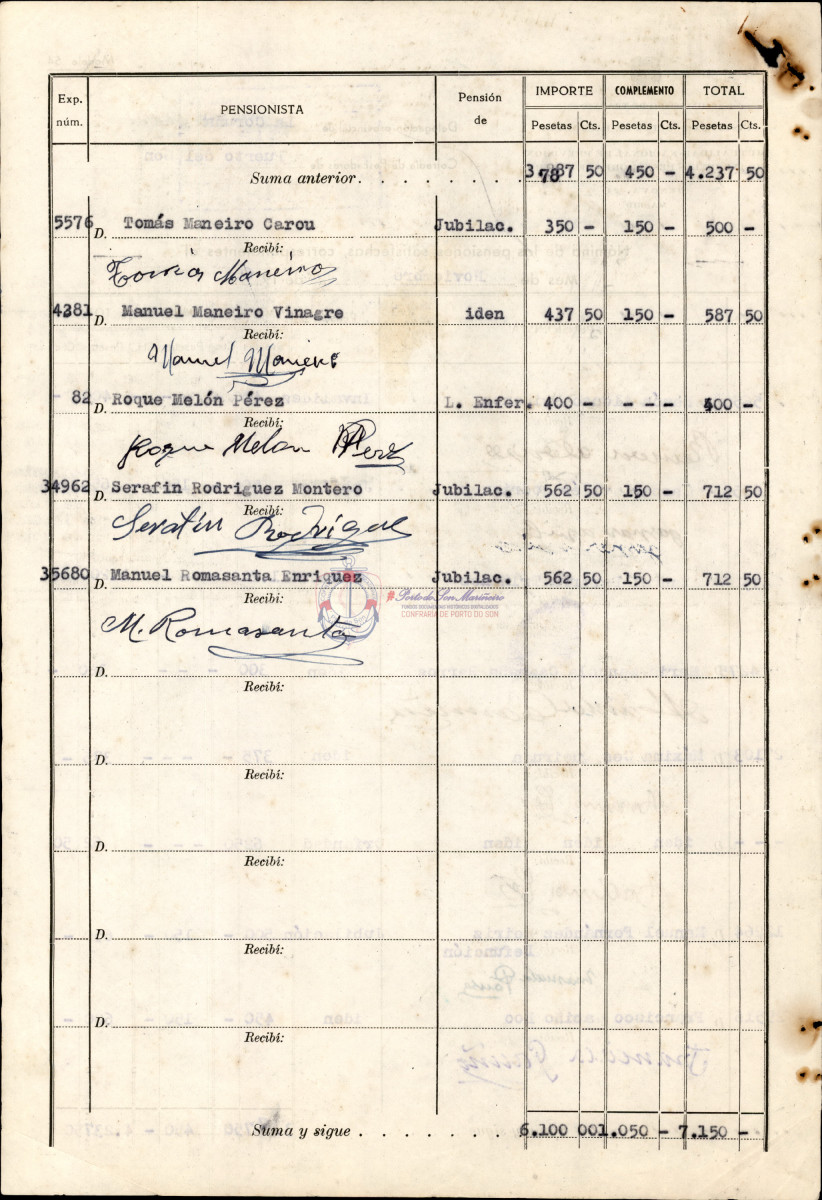 Exp. núm. PENSIONISTA Pensión de IMPORTE COMPLEMENTO TOTAL
Pesetas Cts. Pesetas Cts. Pesetas Cts.
Suma anterior. . . . . . . . 50 450 - 4.237 50
5576 D. Tomás Maneiro Carou Jubilac. 350 - 150 - 500 -
Recibí:
Maneiro
4281 D. Manuel Maneiro Vinagre iden 437 50 150 - 587 50
Recibí:
Manuel Maneiro
82 D. Roque Melón Pérez L. Enfer. 400 - - - - 400 -
Recibí:
Roque Melon Perez
34962 D. Serafin Rodriguez Montero Jubilac. 562 50 150 - 712 50
Recibí:
Serafin Rodrigue
35680 D. Manuel Romasanta Enriquez Jubilac. 562 50 150 - 712 50
Recibí:
Porto do Son Mariñeiro
FONDOS DOCUMENTAIS HISTÓRICOS DIXITALIZADOS
CONFRARÍA DE PORTO DO SON
M. Romasanta
D.
Recibí:
D.
Recibí:
D.
Recibí:
D.
Recibí:
D.
Recibí:
Suma y sigue . . . . . . . 6.100 00 1.050 - 7.150 -